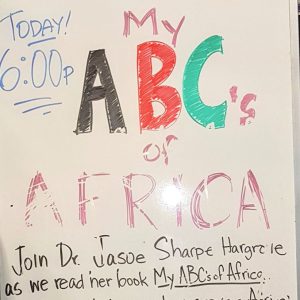 TODAY!
6:00P
My
ABC's
of
AFRICA
Join Dr. Sharpe
as we read her book My ABC's of Africa.